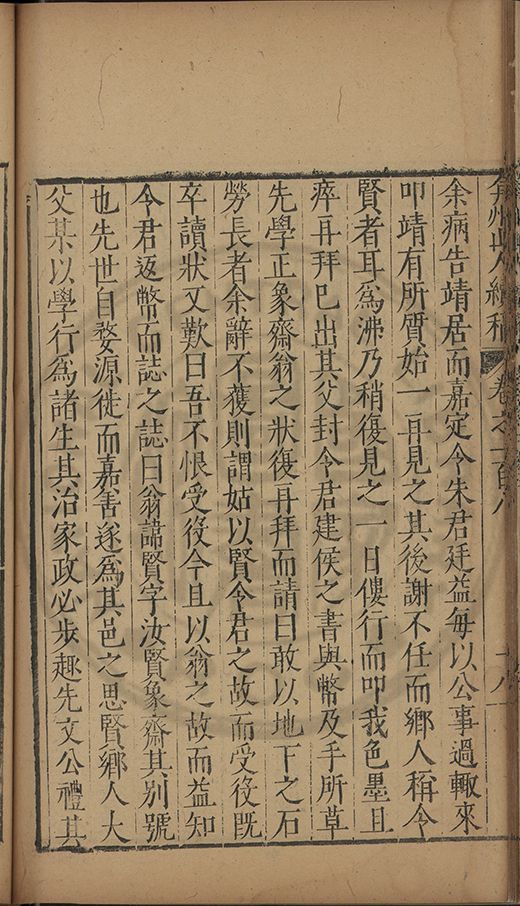 弇州山人續稿 卷之一百八 十八
余病告靖居而嘉定令朱君廷益每以公事過輙來
叩靖有所質始一再見之其後謝不任而鄉人稱今
賢者耳爲沸乃稍復見之一日僂行而叩我色墨且
瘁再拜巳出其父封令君建侯之書與幣及手所草
先學正象齋翁之狀復再拜而請曰敢以地下之石
勞長者余辭不獲則謂姑以賢令君之故而受役旣
卒讀狀又歎曰吾不恨受役今且以翁之故而益知
今君返幣而誌之誌曰翁諱賢字汝賢象齋其別號
也先世自婺源徙而嘉善遂爲其邑之思賢鄉人大
父某以學行爲諸生其治家政必步趣先文公禮其